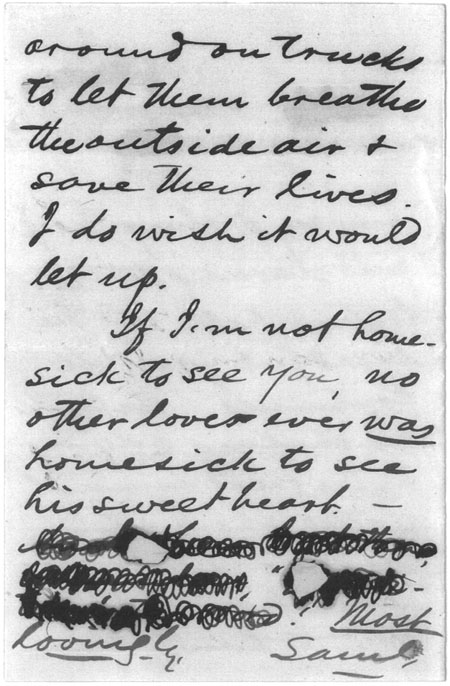 around on trucks
to let them breathe
the outside air &
save their lives.
I do wish it would
let up.
If I'm not home-
sick to see you, no
other lover ever was
homesick to see
his sweetheart. —
Most
lovingly,
Saml